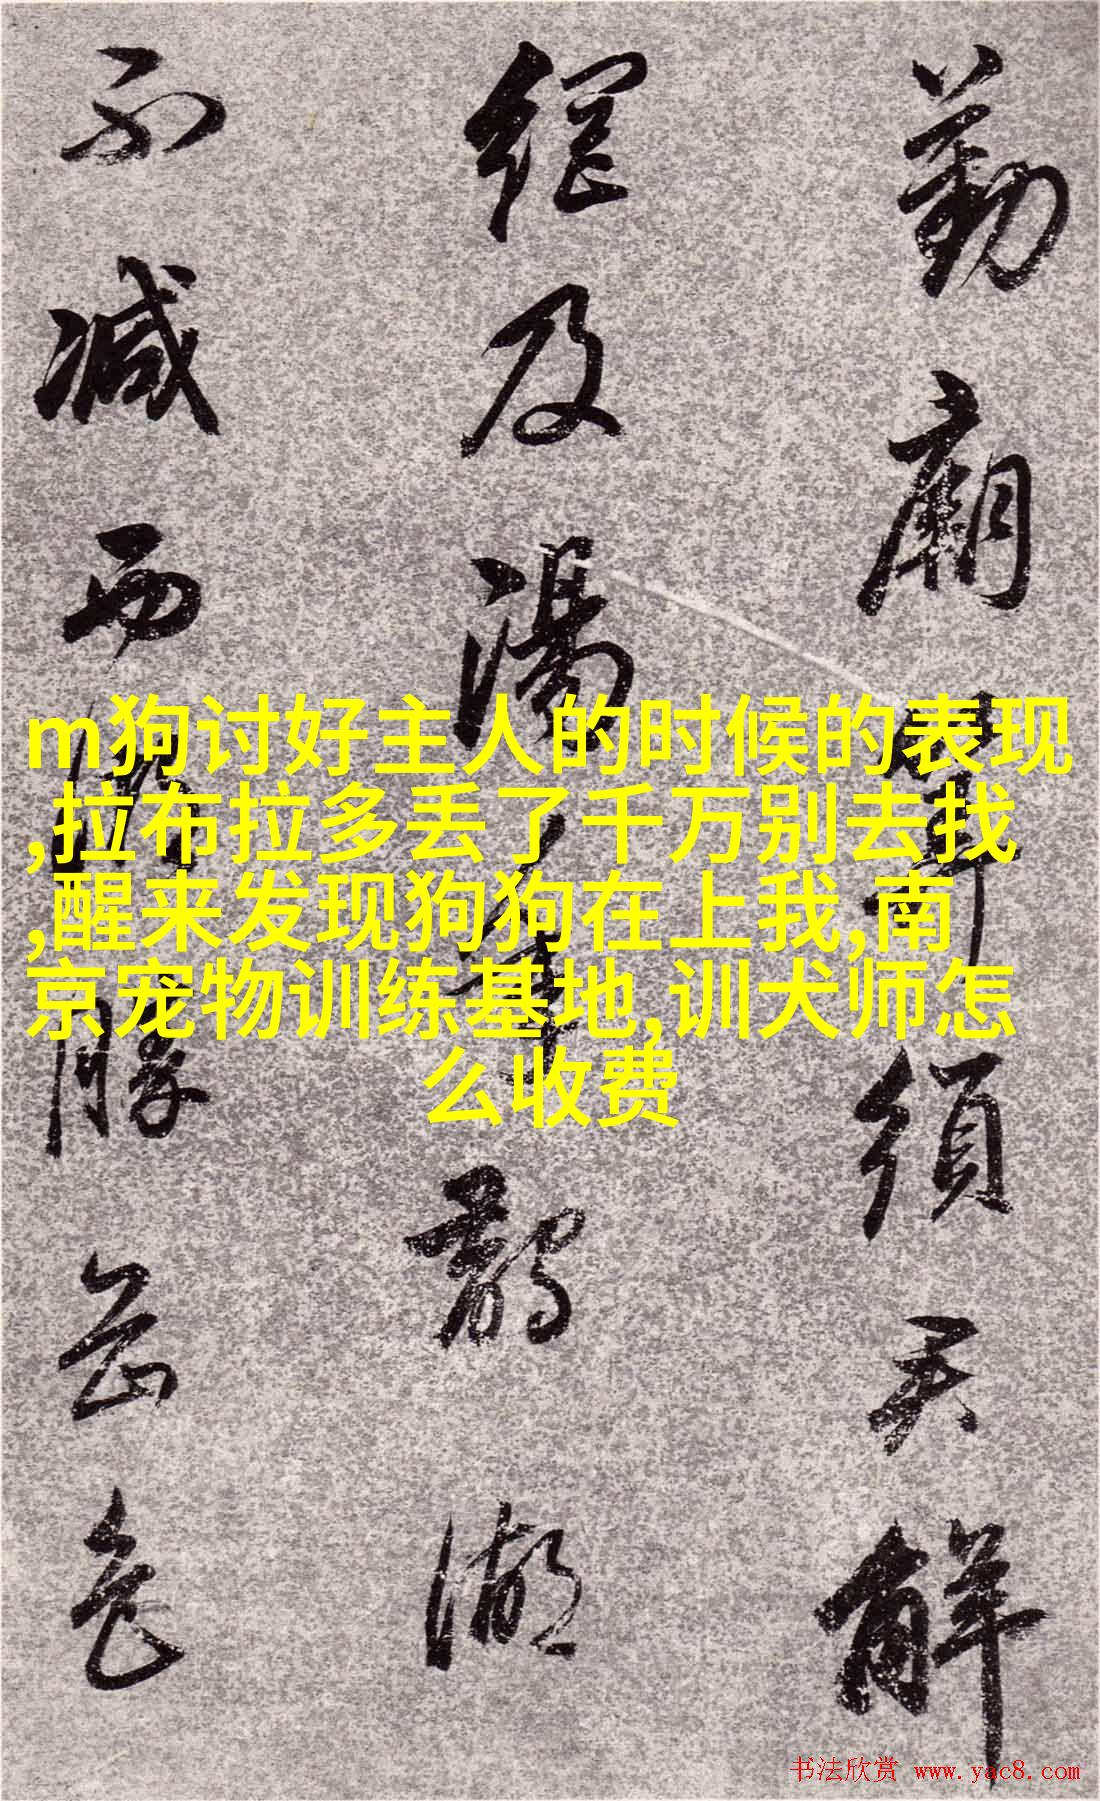 勤廟算須天解
網及湯
鵲湖
不減西
勝在色
m狗讨好主人的时候的表现
,拉布拉多丢了千万别去找
,醒来发现狗狗在上我,南
京宠物训练基地,训犬师怎
么收费
书法欣赏 www.yac8.com